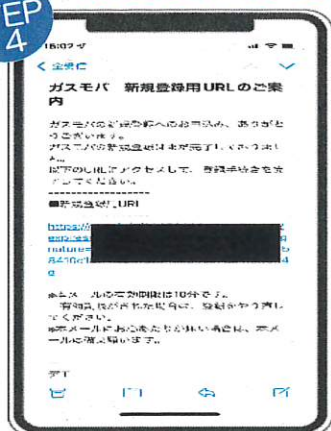 EP
4
16:02
全受信
ガスモバ 新規登録用URLのご案
内
ガスモバの新規登録へのお申込み、ありがと
うございます。
ガスモバの新規登録はまだ完了しておりませ
ん。
以下のURLにアクセスして、登録手続きを完
了してください。
--------------------
■新規登録URL
https://
nature=
※本メールの有効期限は10分です。
有効期限が切れた場合は、登録をやり直し
てください。
※本メールにお心あたりが無い場合は、本メ